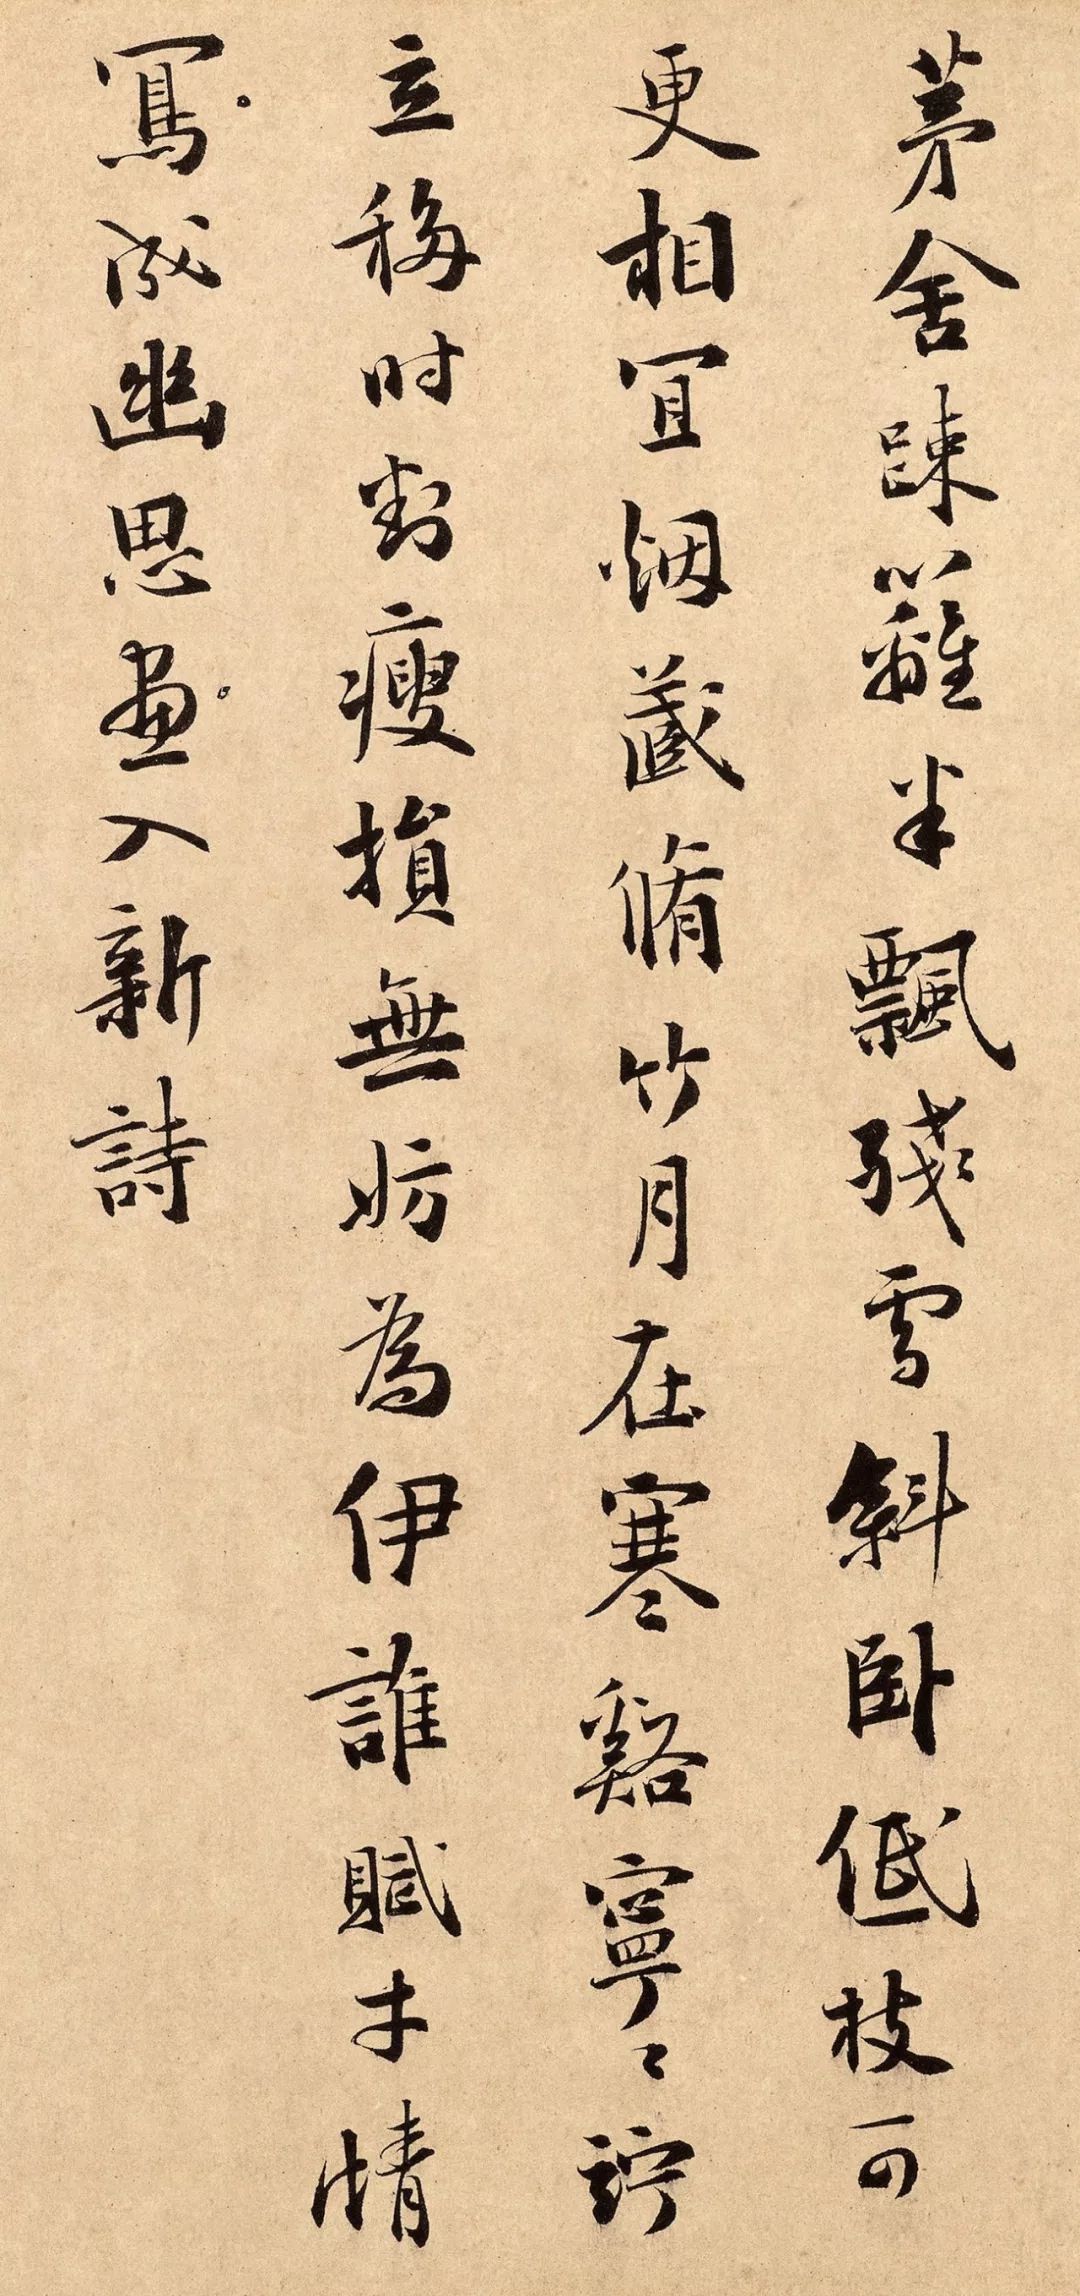 茅舍踈籬半飄殘雪斜卧低枝可
更相宜烟藏脩竹月在寒谿寧〻竚
立移时判瘦損無妨為伊誰賦才情
寫成幽思畫入新詩